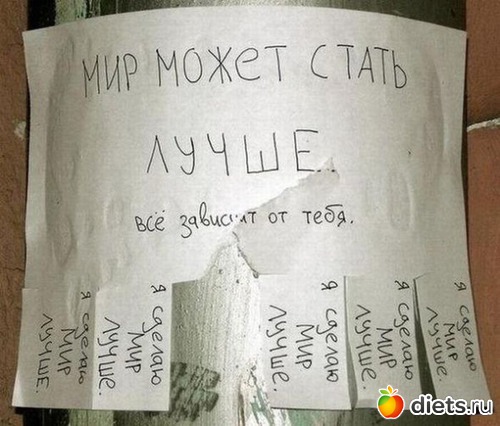 МИР МОЖЕТ СТАТЬ
ЛУЧШЕ.
всё зависит от тебя.
я сделаю
МИР
ЛУЧШЕ.
я сделаю
МИР
ЛУЧШЕ.
я сделаю
МИР
ЛУЧШЕ.
я сделаю
МИР
ЛУЧШЕ.
я сделаю
МИР
ЛУЧШЕ.
diets.ru